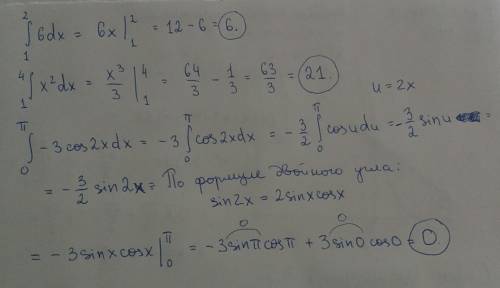 ∫₁² 6dx = 6x |₁² = 12 - 6 = 6.
∫₁⁴ x²dx = x³/3 |₁⁴ = 64/3 - 1/3 = 63/3 = 21.
u = 2x
∫₀^π -3cos2xdx = -3 ∫₀^π cos2xdx = -3/2 ∫₀^π cosudu = -3/2 sinu =
= -3/2 sin2x = По формуле двойного угла:
sin2x = 2sinxcosx
= -3sinxcosx |₀^π = -3sinπcosπ + 3sin0cos0 = 0.
0 0